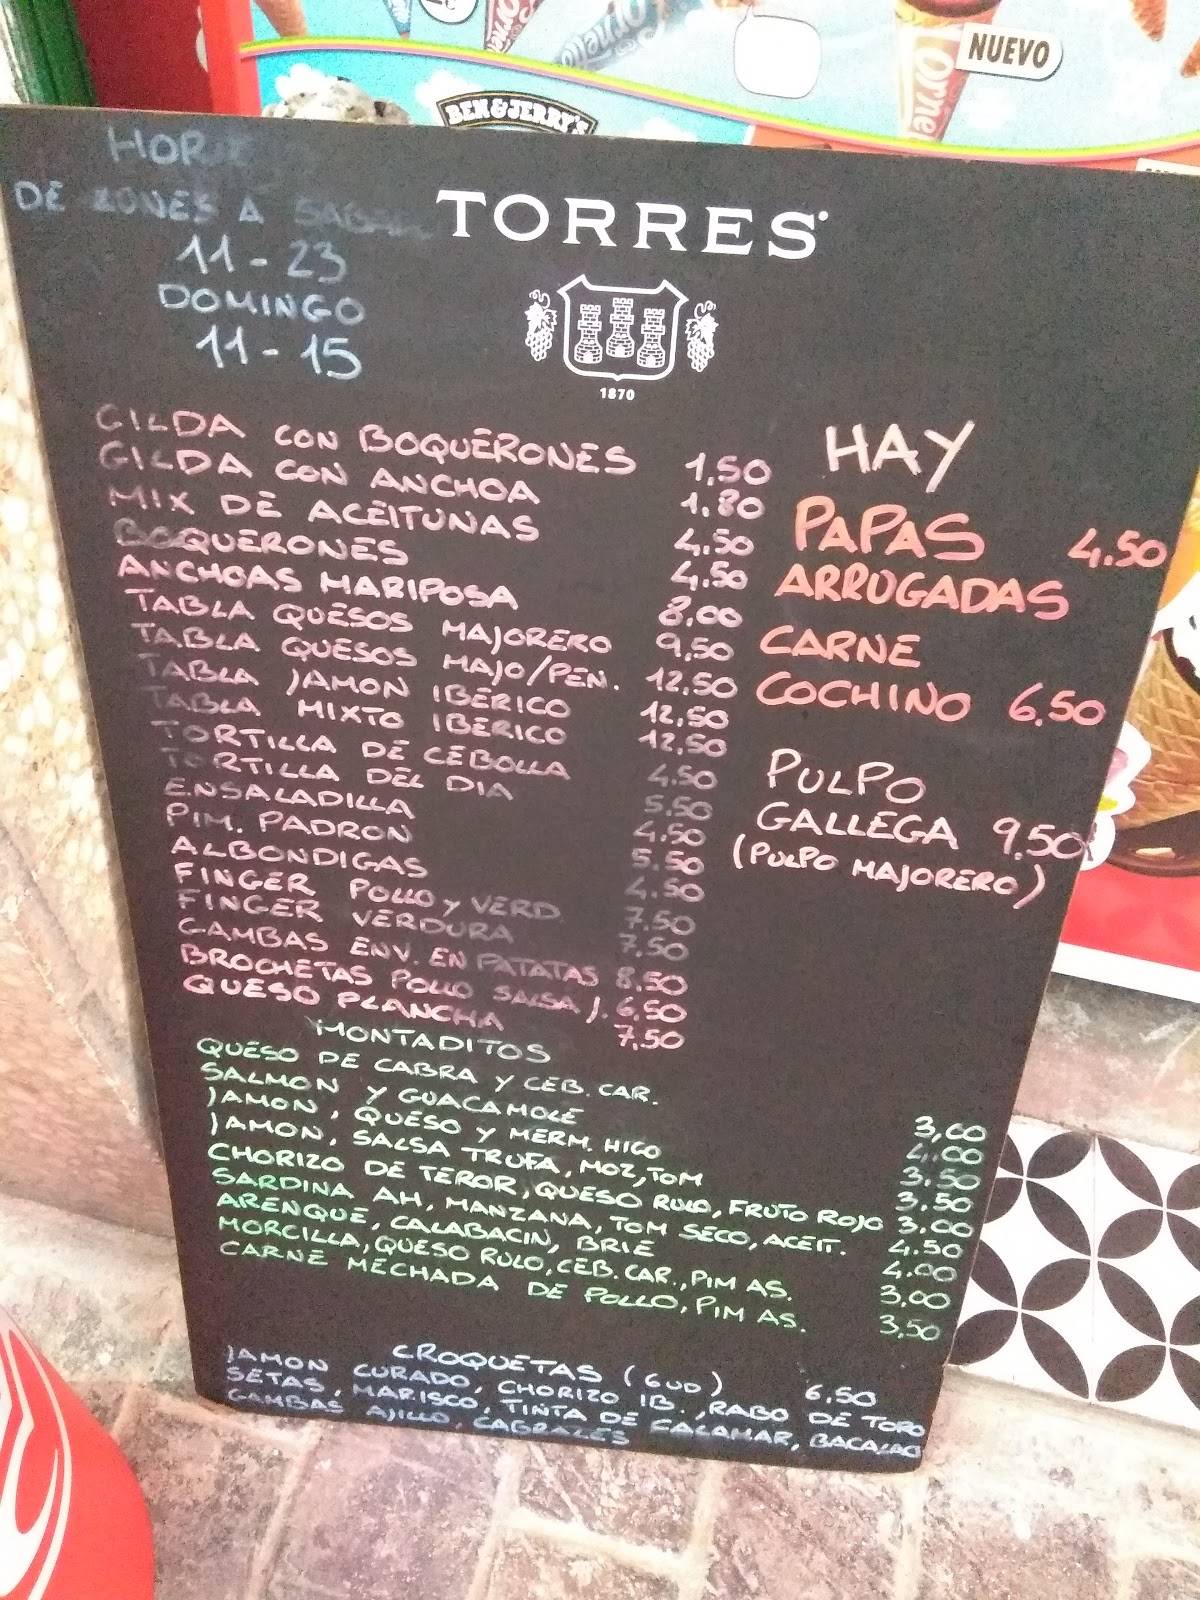 NUEVO
BEN & JERRY'S
HOR
DE LUNES A
11-23
DOMINGO
11-15
TORRES
1870
GILDA CON BOQUERONES 1,50
GILDA CON ANCHOA 1.80
MIX DE ACEITUNAS 4.50
BOQUERONES 4.50
ANCHOAS MARIPOSA 8.00
TABLA QUESOS MAJORERO 9.50
TABLA QUESOS MAJO/PEN. 12.50
TABLA JAMON IBERICO 12.50
TABLA MIXTO IBERICO 12.50
TORTILLA DE CEBOLLA 4.50
TORTILLA DEL DIA 5.50
ENSALADILLA 4.50
PIM. PADRON 5.50
ALBONDIGAS 4.50
FINGER POLLO y VERD. 7.50
FINGER VERDURA 7.50
GAMBAS ENV. EN PATATAS 8.50
BROCHETAS POLLO SALSA J. 6.50
QUESO PLANCHA 7.50
HAY
PAPAS 4.50
ARRUGADAS
CARNE
COCHINO 6.50
PULPO
GALLEGA 9.50
(PULPO MAJORERO)
MONTADITOS
QUESO DE CABRA Y CEB. CAR. 3,00
SALMON Y GUACAMOLE 4.00
JAMON, QUESO Y MERM. HIGO 3.50
JAMON, SALSA TRUFA, MOZ, TOM 3.50
CHORIZO DE TEROR, QUESO RULO, FRUTO ROJO 3.00
SARDINA AH, MANZANA, TOM SECO, ACEIT. 4.50
ARENQUE, CALABACIN, BRIE 4.00
MORCILLA, QUESO RULO, CEB. CAR., PIM AS. 3.00
CARNE MECHADA DE POLLO, PIM AS. 3,50
CROQUETAS (6 UD) 6.50
JAMON CURADO, CHORIZO IB., RABO DE TORO
SETAS, MARISCO, TINTA DE CALAMAR, BACALAO
GAMBAS AJILLO, CABRALES